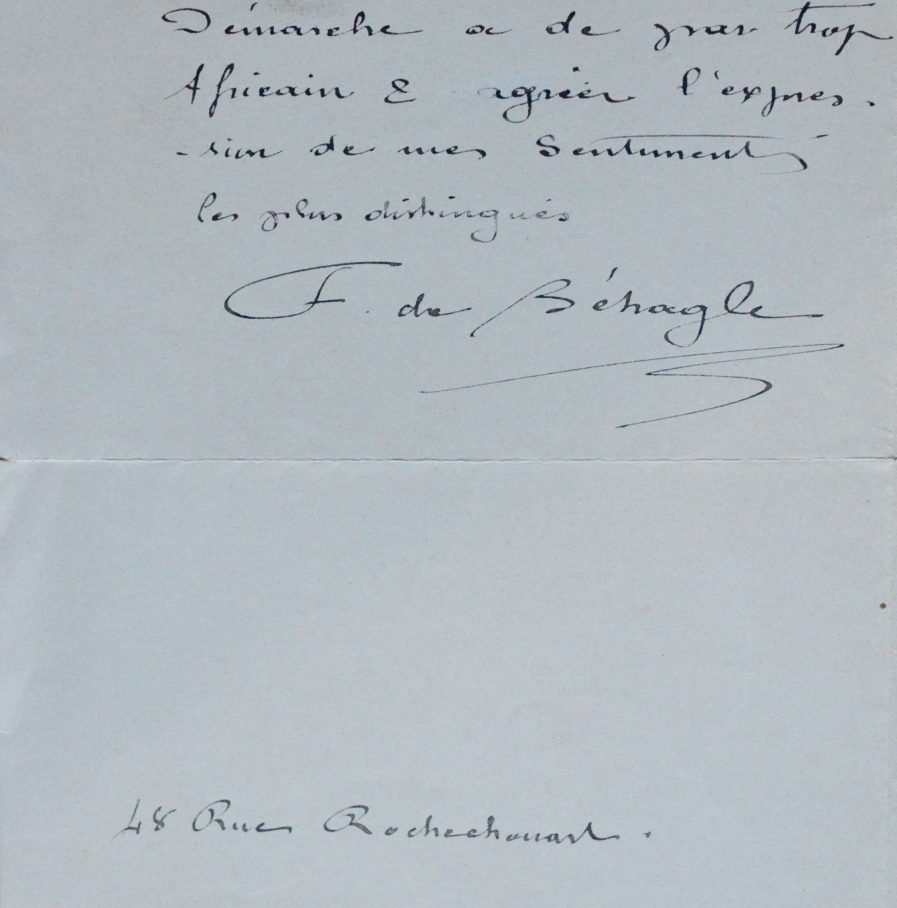 Démarche a de par trop
Africain & agréer l'expres.
-sion de mes Sentiments
les plus distingués
F. de Béhagle
48 Rue Rochechouart.